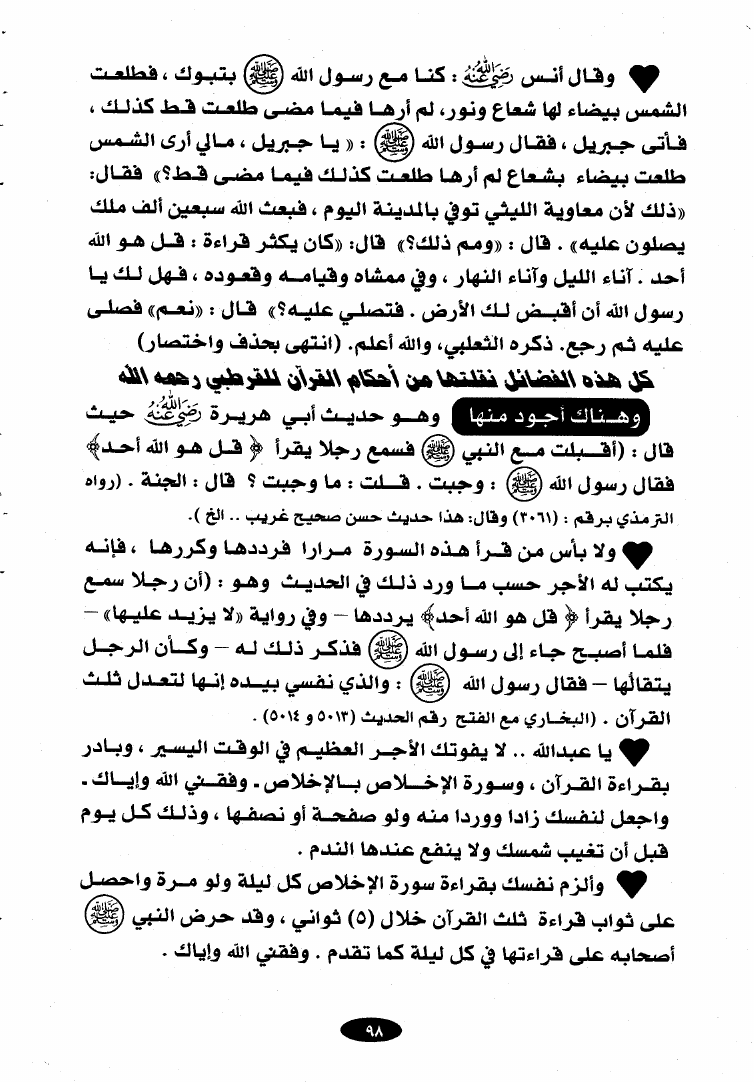 وقال أنس رضي الله عنه : كنا مع رسول الله ﷺ بتبوك ، فطلعت
الشمس بيضاء لها شعاع ونور، لم أرها فيما مضى طلعت قط كذلك ،
فأتى جبريل ، فقال رسول الله ﷺ : « يا جبريل ، مالي أرى الشمس
طلعت بيضاء بشعاع لم أرها طلعت كذلك فيما مضى قط؟» فقال:
«ذلك لأن معاوية الليثي توفي بالمدينة اليوم ، فبعث الله سبعين ألف ملك
يصلون عليه» . قال : «ومم ذلك؟» قال: «كان يكثر قراءة : قل هو الله
أحد . آناء الليل وآناء النهار ، وفي ممشاه وقيامه وقعوده ، فهل لك يا
رسول الله أن أقبض لك الأرض . فتصلي عليه؟» قال : «نعم» فصلى
عليه ثم رجع. ذكره الثعلبي، والله أعلم. (انتهى بحذف واختصار)
كل هذه الفضائل نقلتها من أحكام القرآن للقرطبي رحمه الله
وهناك أجود منها وهو حديث أبي هريرة رضي الله عنه حيث
قال : (أقبلت مع النبي ﷺ فسمع رجلا يقرأ ﴿ قل هو الله أحد﴾
فقال رسول الله ﷺ : وجبت . قلت : ما وجبت ؟ قال : الجنة . (رواه
الترمذي برقم : (٣٠٦١) وقال: هذا حديث حسن صحيح غريب .. الخ ).
ولا بأس من قرأ هذه السورة مرارا فرددها وكررها ، فإنه
يكتب له الأجر حسب ما ورد ذلك في الحديث وهو : (أن رجلا سمع
رجلا يقرأ ﴿ قل هو الله أحد﴾ يرددها – وفي رواية «لا يزيد عليها» –
فلما أصبح جاء إلى رسول الله ﷺ فذكر ذلك له – وكأن الرجل
يتقالُها – فقال رسول الله ﷺ : والذي نفسي بيده إنها لتعدل ثلث
القرآن . (البخاري مع الفتح رقم الحديث (٥٠١٣ و ٥٠١٤) .
يا عبدالله .. لا يفوتك الأجر العظيم في الوقت اليسير ، وبادر
بقراءة القرآن ، وسورة الإخلاص بالإخلاص. وفقني الله وإياك .
واجعل لنفسك زادا ووردا منه ولو صفحة أو نصفها ، وذلك كل يوم
قبل أن تغيب شمسك ولا ينفع عندها الندم .
وألزم نفسك بقراءة سورة الإخلاص كل ليلة ولو مرة واحصل
على ثواب قراءة ثلث القرآن خلال (٥) ثواني ، وقد حرض النبي ﷺ
أصحابه على قراءتها في كل ليلة كما تقدم . وفقني الله وإياك .
٩٨